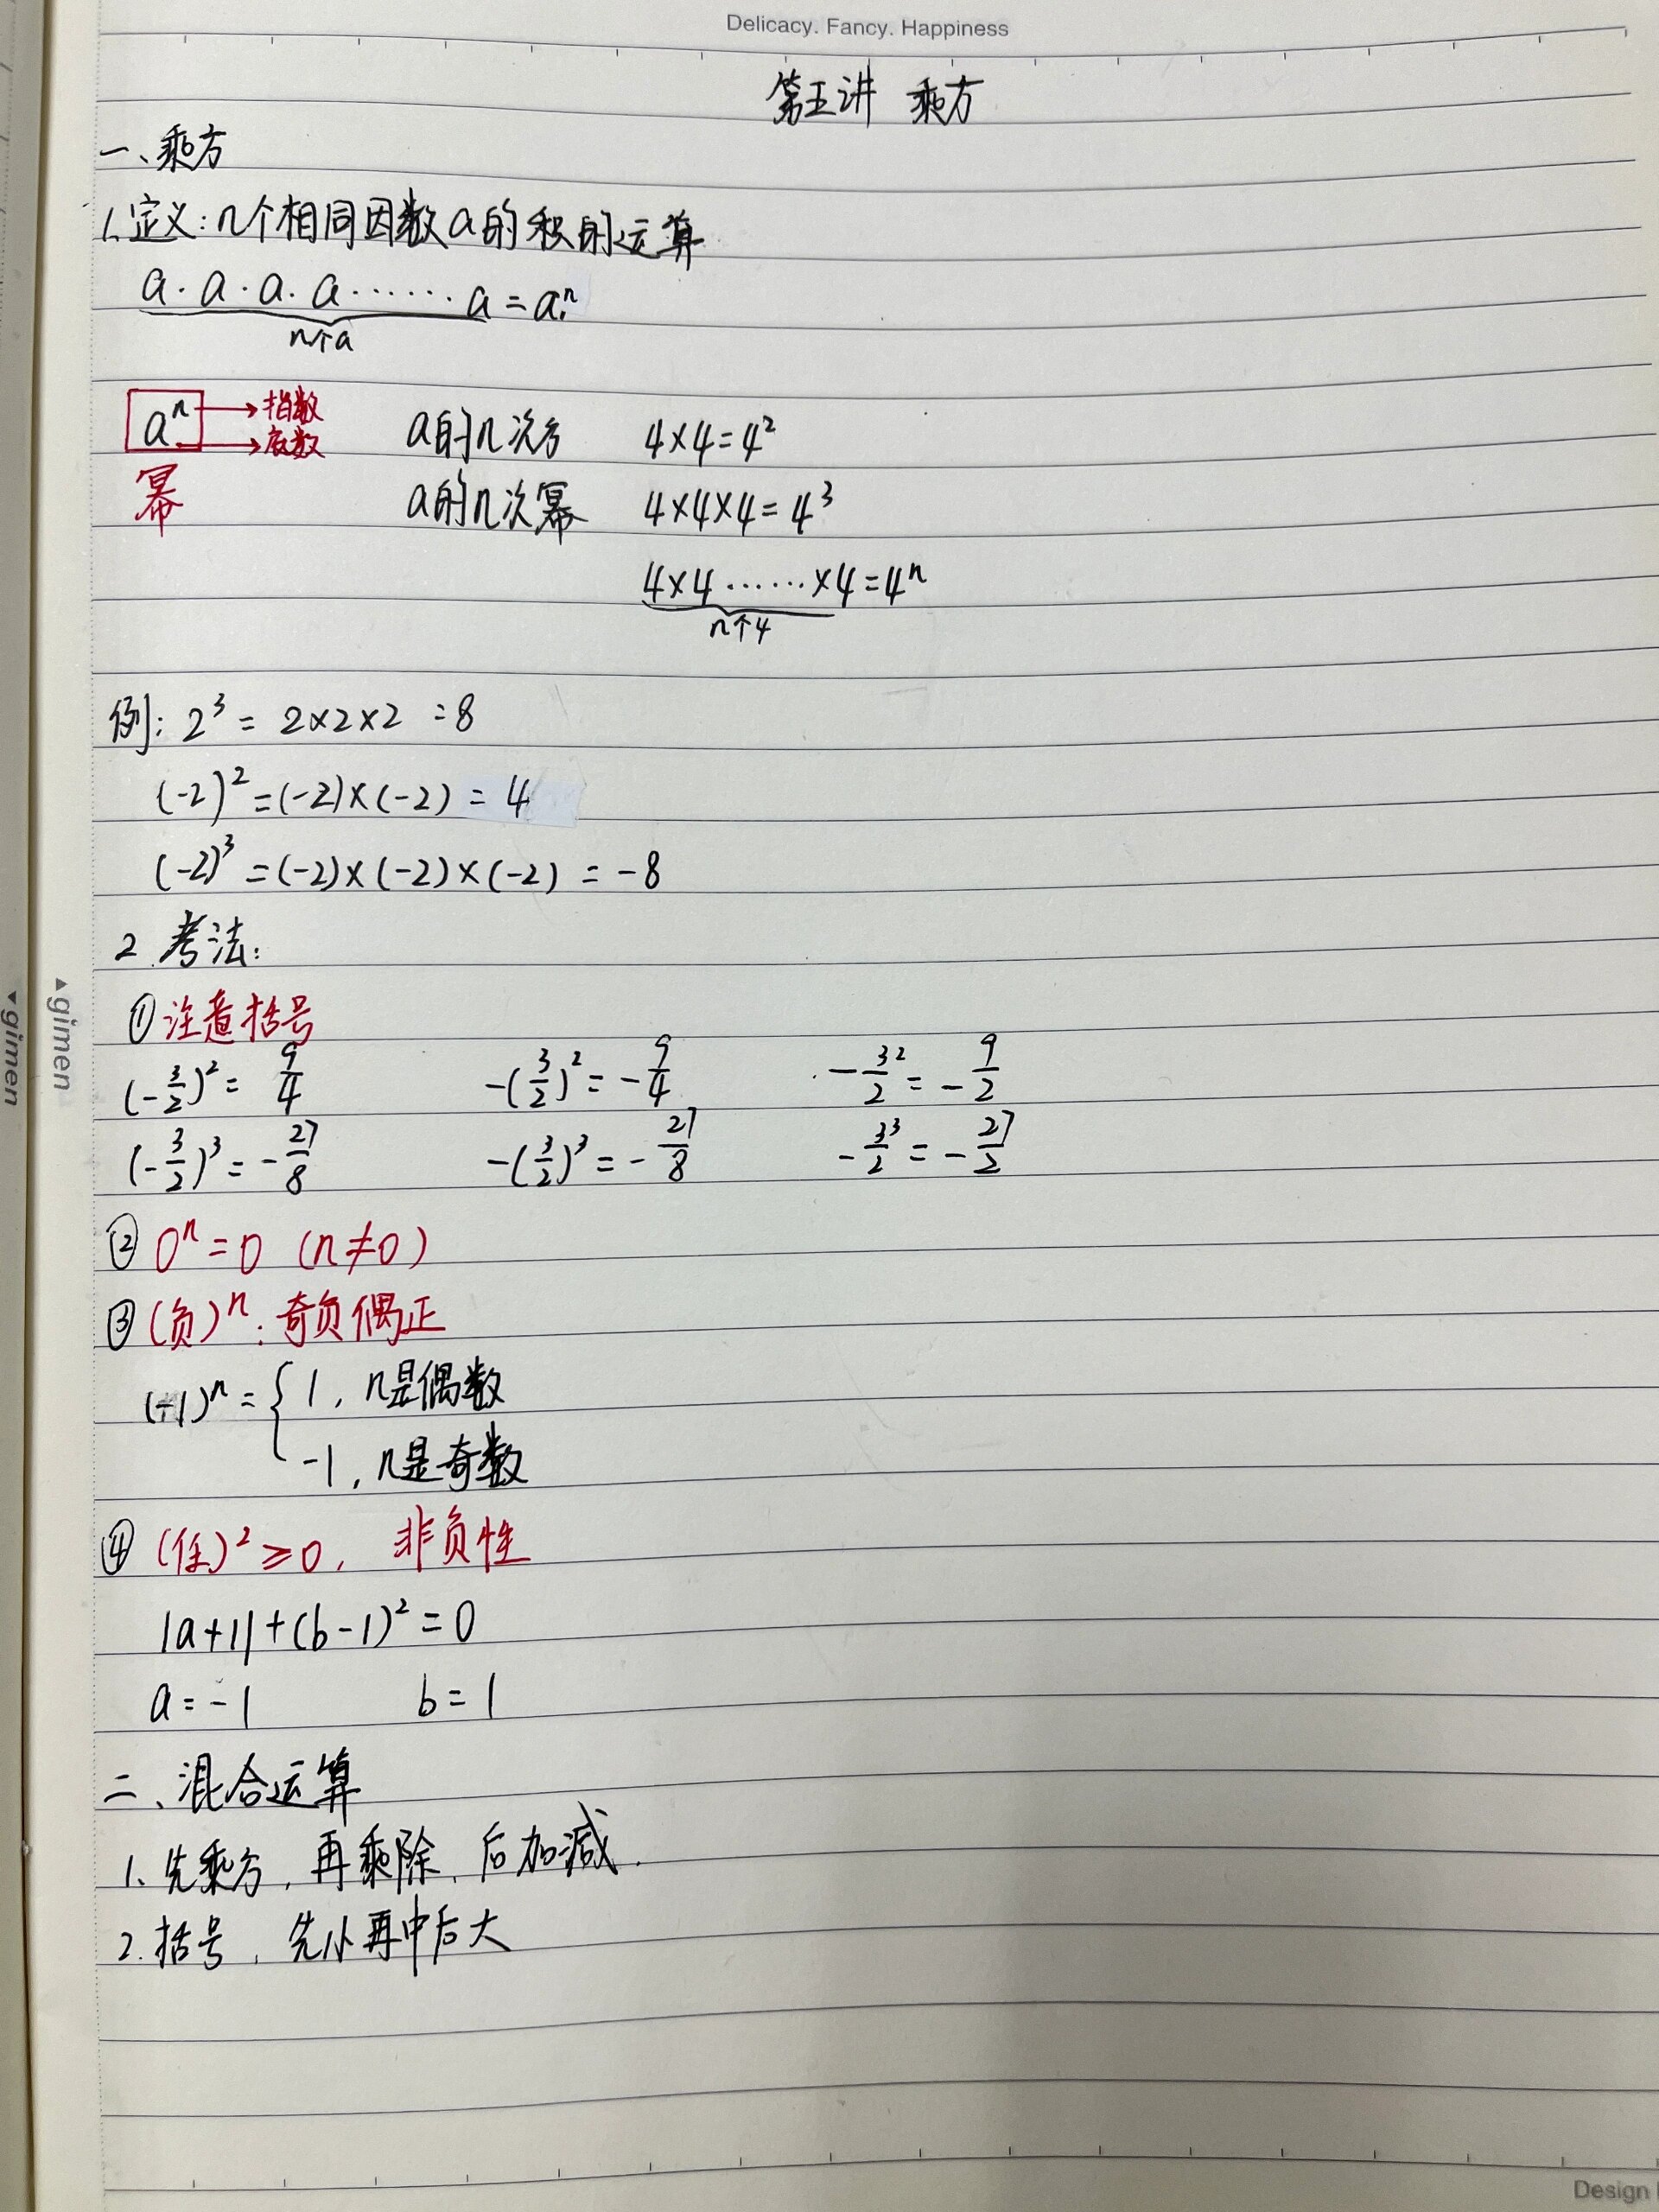 Delicacy. Fancy. Happiness
第五讲 乘方
一、乘方
1.定义:n个相同因数a的积的运算
a·a·a·a······a=aⁿ
n个a
aⁿ →指数
→底数
幂
a的n次方 4×4=4²
a的n次幂 4×4×4=4³
4×4······×4=4ⁿ
n个4
例:2³=2×2×2=8
(-2)²=(-2)×(-2)=4
(-2)³=(-2)×(-2)×(-2)=-8
2.考法:
①注意括号
(-3/2)²=9/4 -(3/2)²=-9/4 -3²/2=-9/2
(-3/2)³=-27/8 -(3/2)³=-27/8 -3³/2=-27/2
②0ⁿ=0(n≠0)
③(负)ⁿ:奇负偶正
(-1)ⁿ={1,n是偶数
-1,n是奇数
④(任)²≥0,非负性
|a+1|+(b-1)²=0
a=-1 b=1
二、混合运算
1、先乘方,再乘除,后加减.
2.括号,先小再中后大
gimen
gimen
Design